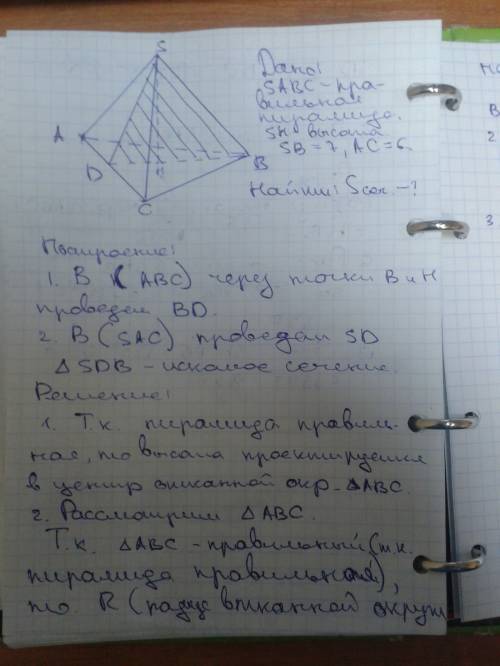 S
A
D
H
B
C
Дано:
SABC - пра-
вильная
пирамида.
SH высота
SB = 7, AC = 6.
Найти: Sсеч. - ?
Построение:
1. В (ABC) через точки B и H
проведем BD.
2. В (SAC) проведем SD
△SDB - искомое сечение.
Решение:
1. Т.к. пирамида правиль-
ная, то высота проектируется
в центр вписанной окр. △ABC.
2. Рассмотрим △ABC.
Т.к. △ABC - правильный (т.к.
пирамида правильная),
то R (радиус вписанной окруж